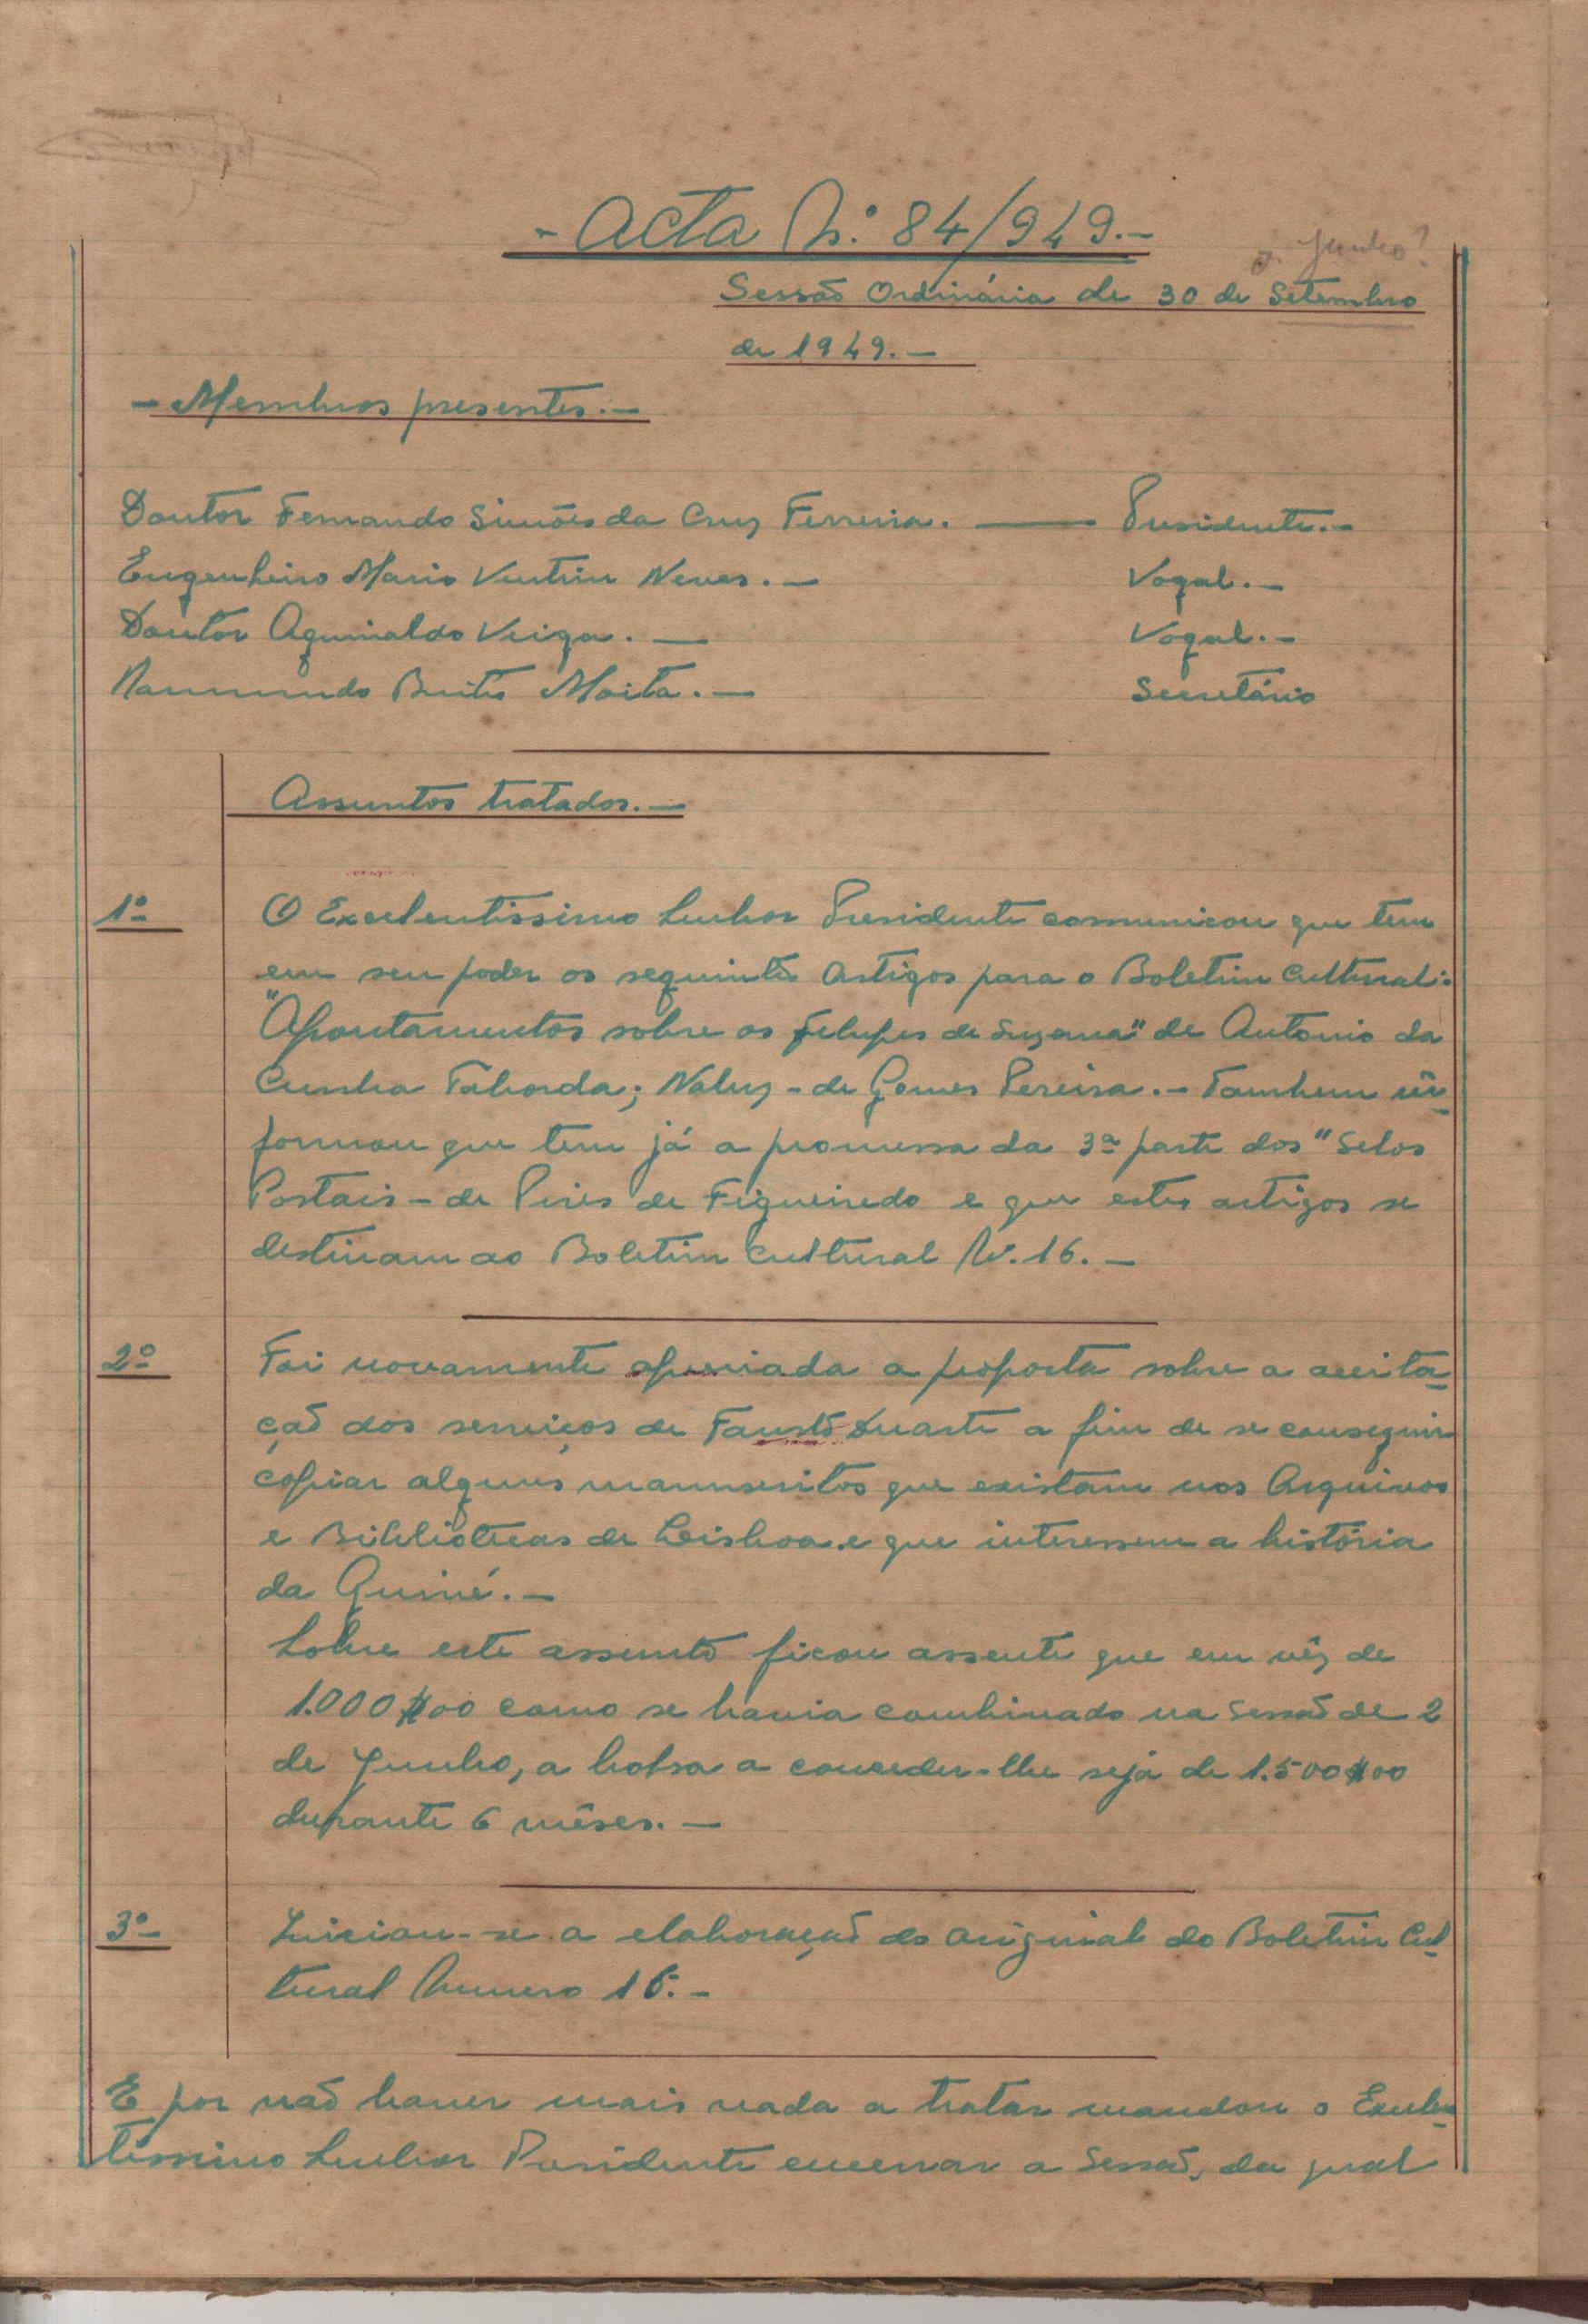 - Acta N.º 84/949.-
Junho?
Sessão Ordinária de 30 de Setembro
de 1949.-
- Membros presentes.-
Doutor Fernando Simões da Cruz Ferreira. — Presidente.-
Engenheiro Mario Ventim Neves.- Vogal.-
Doutor Aguinaldo Veiga.- Vogal.-
Raimundo Brites Moita.- Secretário
Assuntos tratados.-
1º O Excelentissimo Senhor Presidente comunicou que tem
em seu poder os seguintes artigos para o Boletim Cultural:
"Apontamentos sobre os Felupes de Suzana" de Antonio da
Cunha Taborda; Naluz - de Gomes Pereira.- Tambem in-
formou que tem já a promessa da 3ª parte dos "Selos
Postais - de Pires de Figueiredo e que estes artigos se
destinam ao Boletim Cultural N.16.-
2º Foi novamente apreciada a proposta sobre a aceita-
ção dos serviços de Fausto Duarte a fim de se conseguir
copiar alguns manuscritos que existam nos Arquivos
e Bibliotecas de Lisboa e que interessem a história
da Guiné.-
Sobre este assunto ficou assente que em vêz de
1.000$00 como se havia combinado na Sessão de 2
de Junho, a bolsa a conceder-lhe seja de 1.500$00
durante 6 mêses.-
3º Iniciou-se a elaboração do original do Boletim Cul-
tural Numero 16.-
E por não haver mais nada a tratar mandou o Excelen-
tissimo Senhor Presidente encerrar a Sessão, da qual